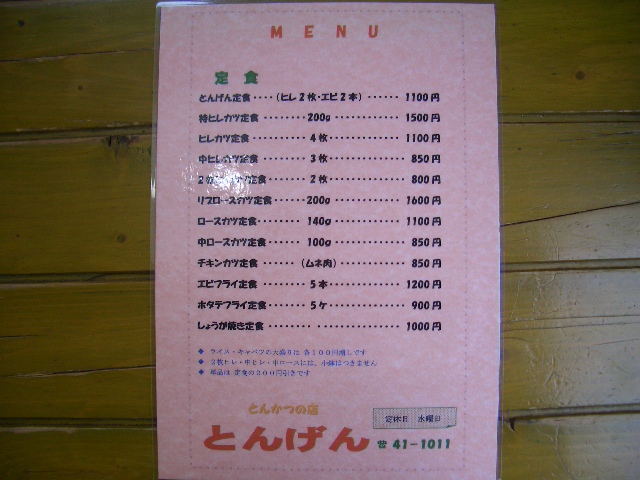 MENU
定食
とんげん定食････(ヒレ2枚･エビ2本)･･････1100円
特ヒレカツ定食････････200g････････････1500円
ヒレカツ定食･････････4枚･････････････1100円
中ヒレカツ定食････････3枚･････････････850円
定食･･･････2枚･････････････800円
リブロースカツ定食･･････200g････････････1600円
ロースカツ定食････････140g････････････1100円
中ロースカツ定食･･･････100g････････････850円
チキンカツ定食･･････(ムネ肉)････････････850円
エビフライ定食････････5本･････････････1200円
ホタテフライ定食･･･････5ケ････････････900円
しょうが焼き定食･･･････ ･ ････････････1000円
◆ ライス・キャベツの大盛りは 各100円増しです
◆ 2枚ヒレ・中ヒレ・中ロースには、小鉢はつきません
◆ 単品は 定食の200円引きです
とんかつの店
定休日 水曜日
とんげん ☎ 41-1011